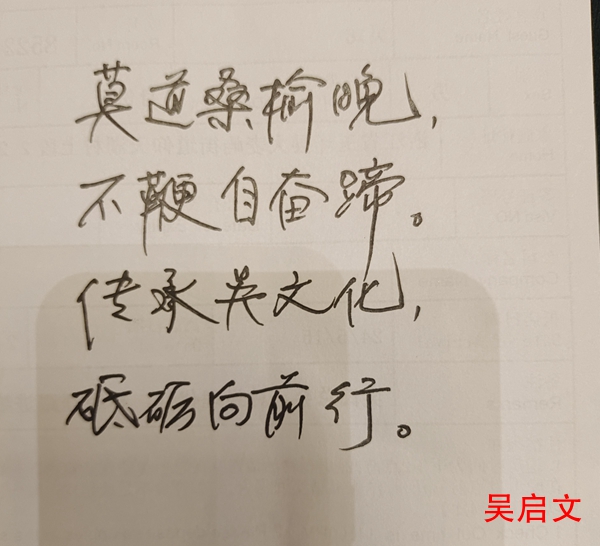 莫道桑榆晚，
不鞭自奋蹄。
传承吴文化，
砥砺向前行。
吴启文